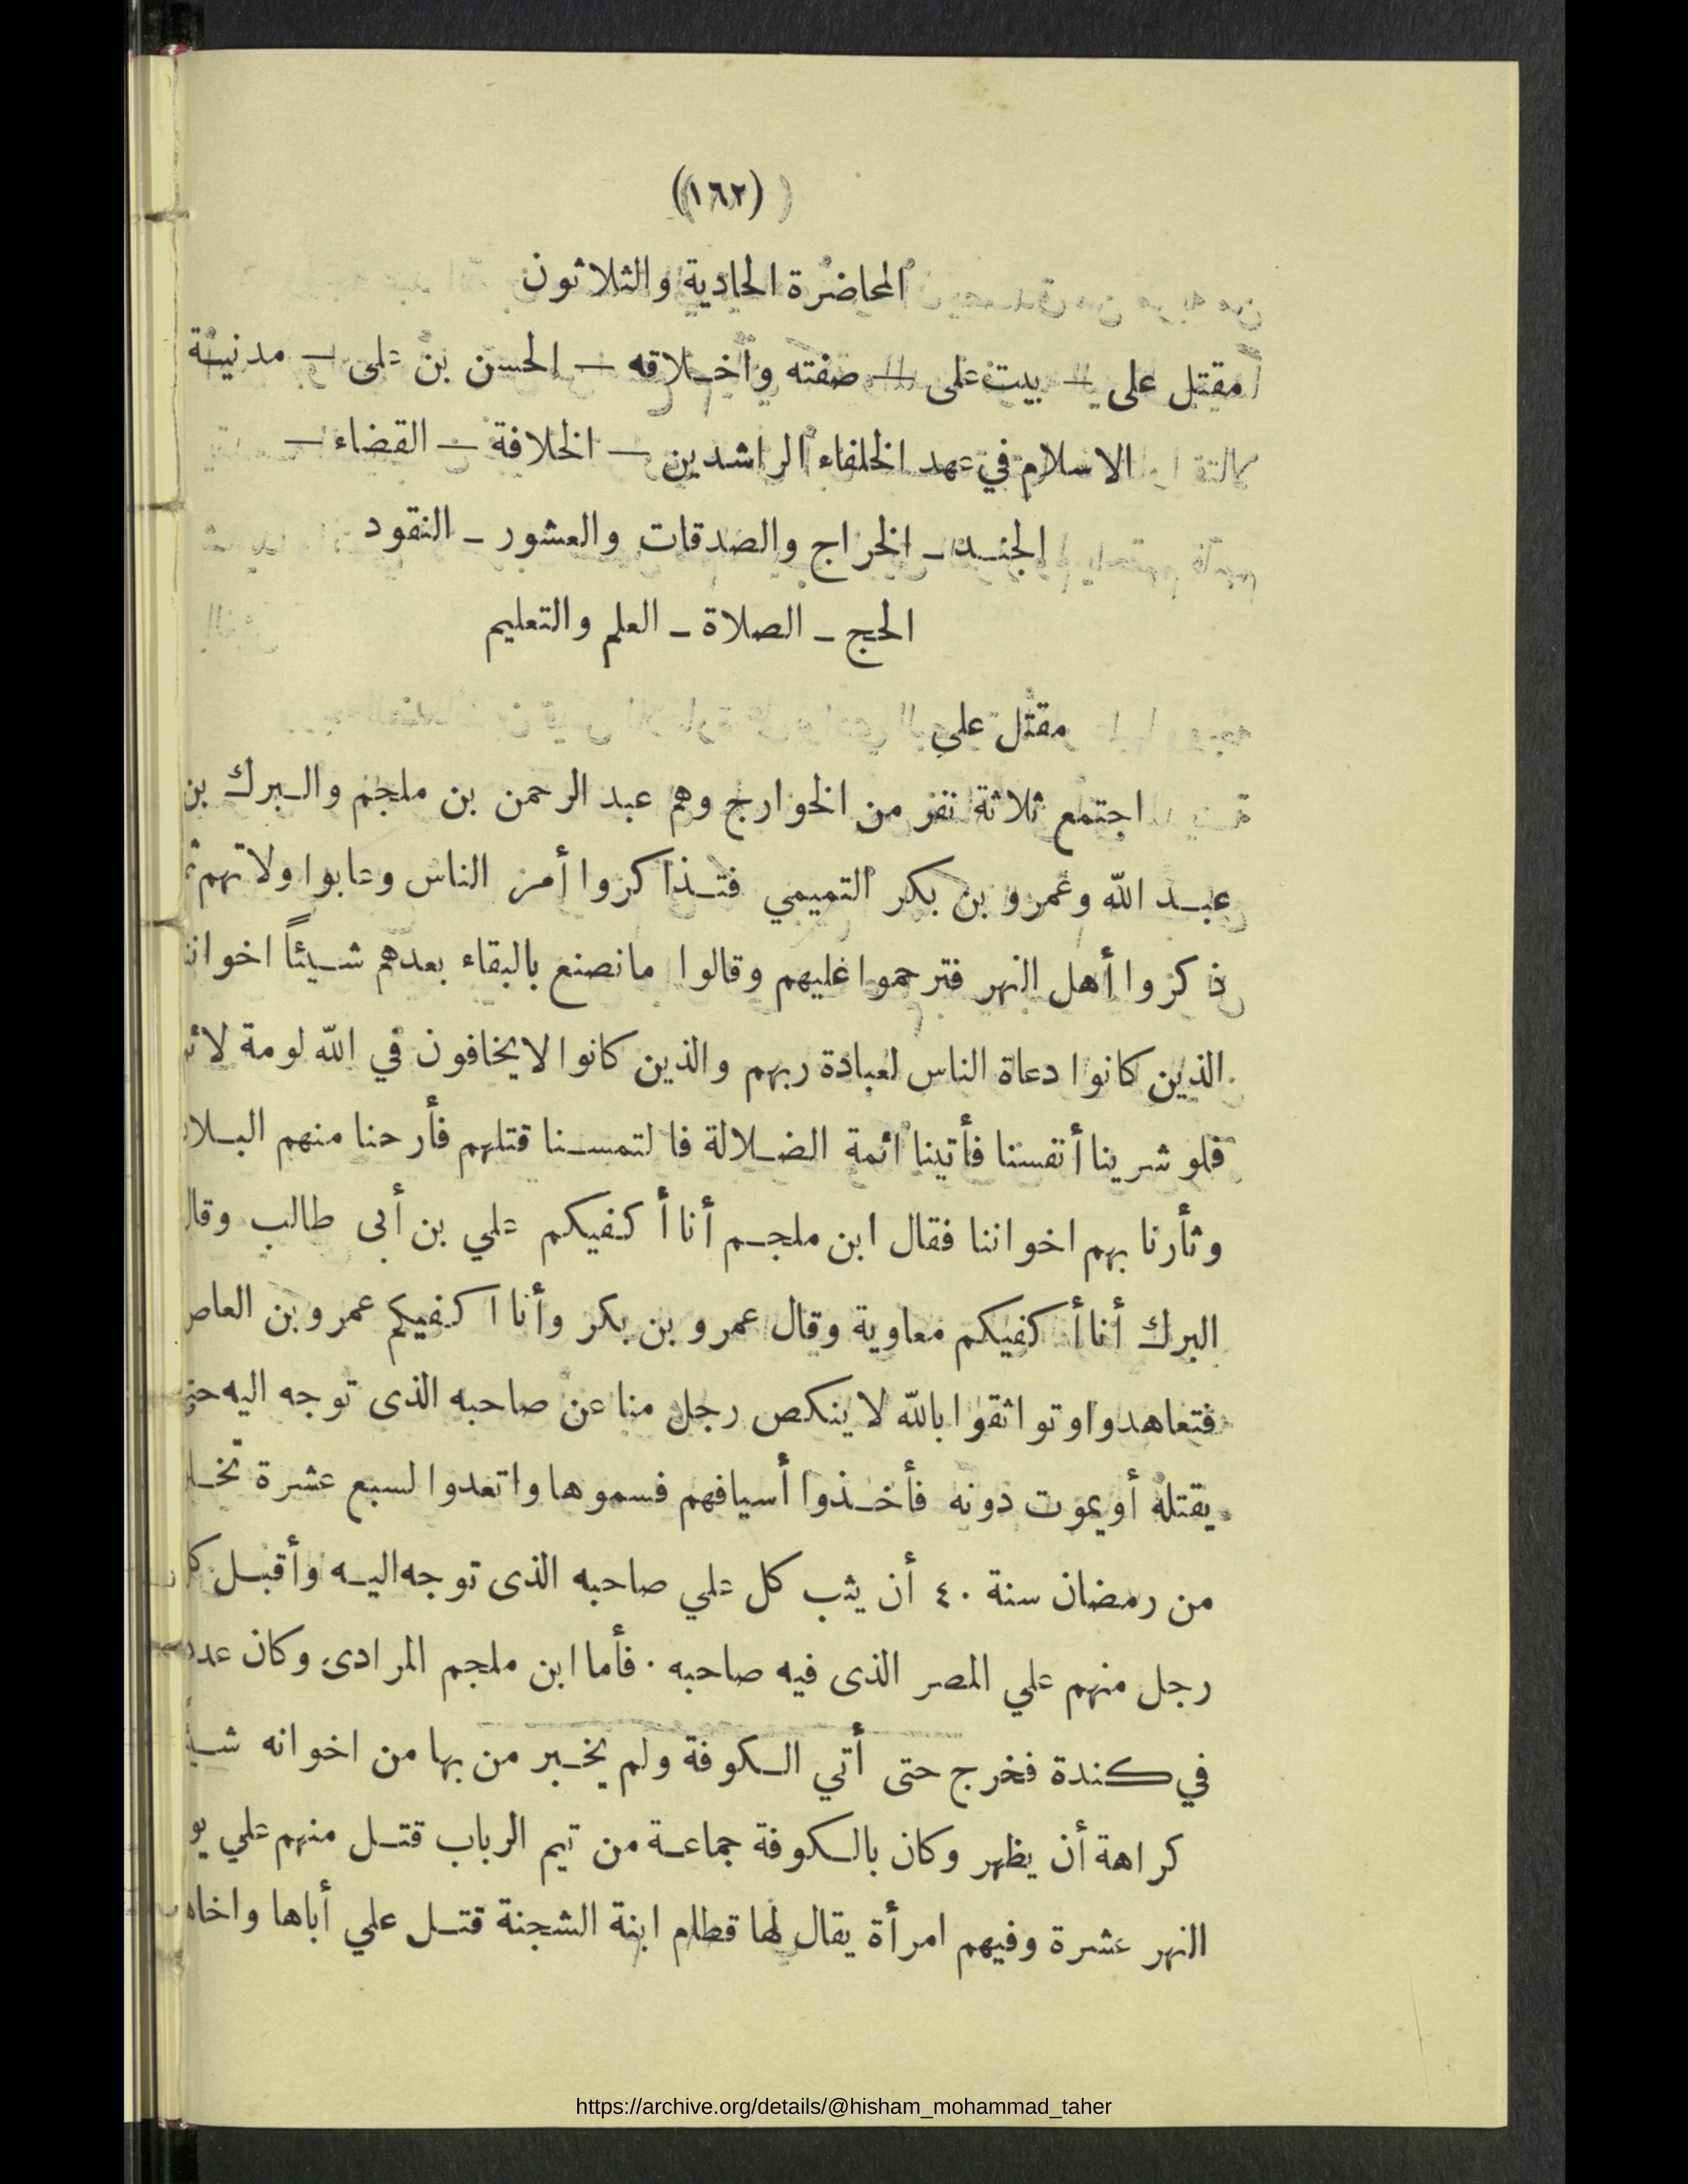 (١٦٢)
المحاضرة الحادية والثلاثون
مقتل على — بيت على — صفته وأخلاقه — الحسن بن على — مدنية
الاسلام في عهد الخلفاء الراشدين — الخلافة — القضاء —
الجند — الخراج والصدقات والعشور — النقود
الحج — الصلاة — العلم والتعليم
مقتل علي
اجتمع ثلاثة نفر من الخوارج وهم عبد الرحمن بن ملجم والبرك بن
عبد الله وعمرو بن بكر التميمي فتذاكروا أمر الناس وعابوا ولاتهم
ذكروا أهل النهر فترحموا عليهم وقالوا مانصنع بالبقاء بعدهم شيئاً
الذين كانوا دعاة الناس لعبادة ربهم والذين كانوا لايخافون في الله لومة
فلو شرينا أنفسنا فأتينا ائمة الضلالة فالتمسنا قتلهم فأرحنا منهم
وثأرنا بهم اخواننا فقال ابن ملجم أنا أكفيكم علي بن أبى طالب وقال
البرك أنا أكفيكم معاوية وقال عمرو بن بكر وأنا اكفيكم عمرو بن العاص
فتعاهدوا وتواثقوا بالله لا ينكص رجل منا عن صاحبه الذى توجه اليه حتى
يقتله أو يموت دونه فأخذوا أسيافهم فسموها واتعدوا لسبع عشرة
من رمضان سنة ٤٠ أن يثب كل علي صاحبه الذى توجه اليه وأقبل
رجل منهم علي المصر الذى فيه صاحبه. فأما ابن ملجم المرادى وكان
في كندة فخرج حتى أتي الكوفة ولم يخبر من بها من اخوانه
كراهة أن يظهر وكان بالكوفة جماعة من تيم الرباب قتل منهم علي
النهر عشرة وفيهم امرأة يقال لها قطام ابنة الشجنة قتل علي أباها واخاها
https://archive.org/details/@hisham_mohammad_taher